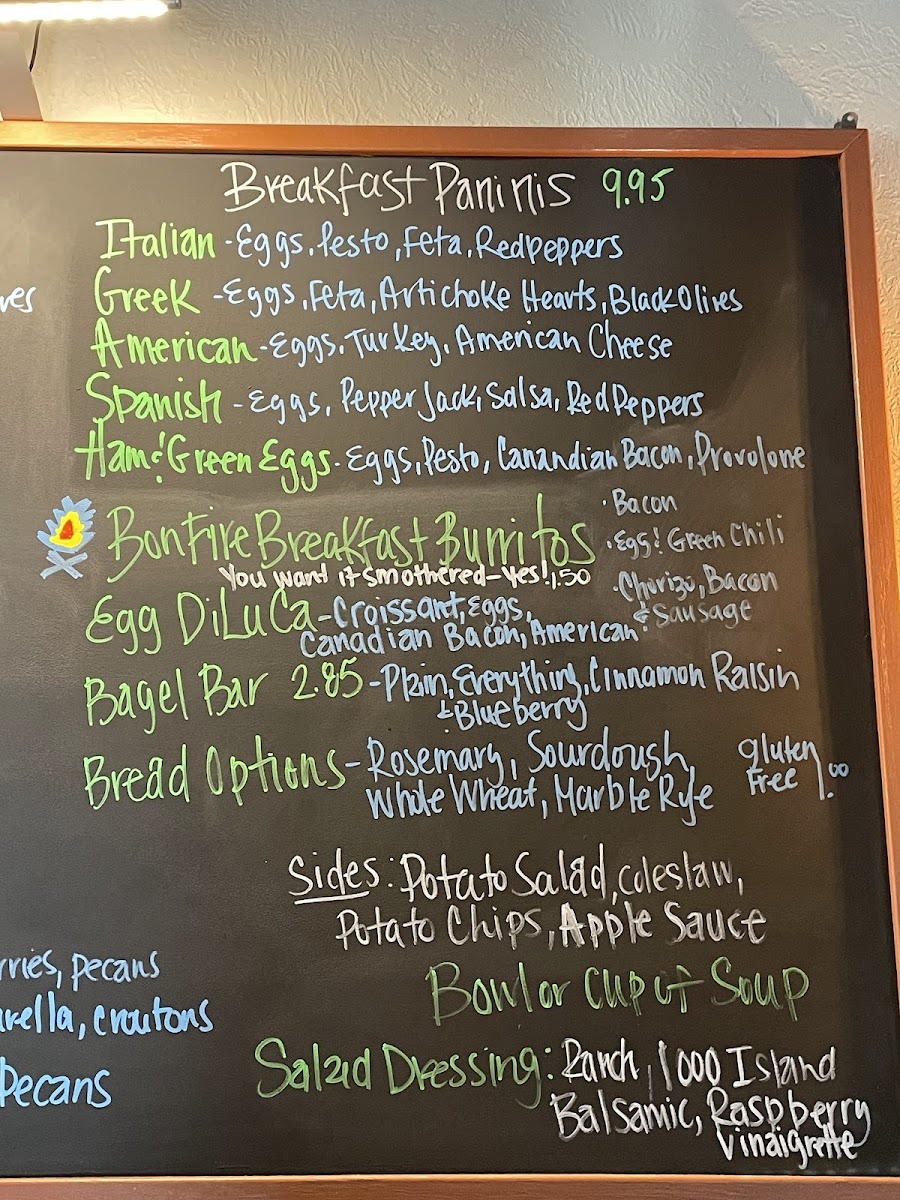 Breakfast Paninis 9.95
Italian - Eggs, Pesto, Feta, Red peppers
Greek - Eggs, Feta, Artichoke Hearts, Black Olives
American - Eggs, Turkey, American Cheese
Spanish - Eggs, Pepper Jack, Salsa, Red Peppers
Ham & Green Eggs - Eggs, Pesto, Canandian Bacon, Provolone
Bonfire Breakfast Burritos
You want it smothered - yes! 1.50
· Bacon
· Egg & Green Chili
· Chorizo, Bacon
& Sausage
Egg DiLuCa - Croissant, Eggs,
Canadian Bacon, American
Bagel Bar 2.85 - Plain, Everything, Cinnamon Raisin
& Blueberry
Bread Options - Rosemary, Sourdough
Whole Wheat, Marble Rye
gluten
Free 1.00
Sides: Potato Salad, coleslaw,
Potato Chips, Apple Sauce
Bowl or cup of Soup
Salad Dressing: Ranch, 1000 Island
Balsamic, Raspberry
Vinaigrette
rries, pecans
rella, croutons
Pecans